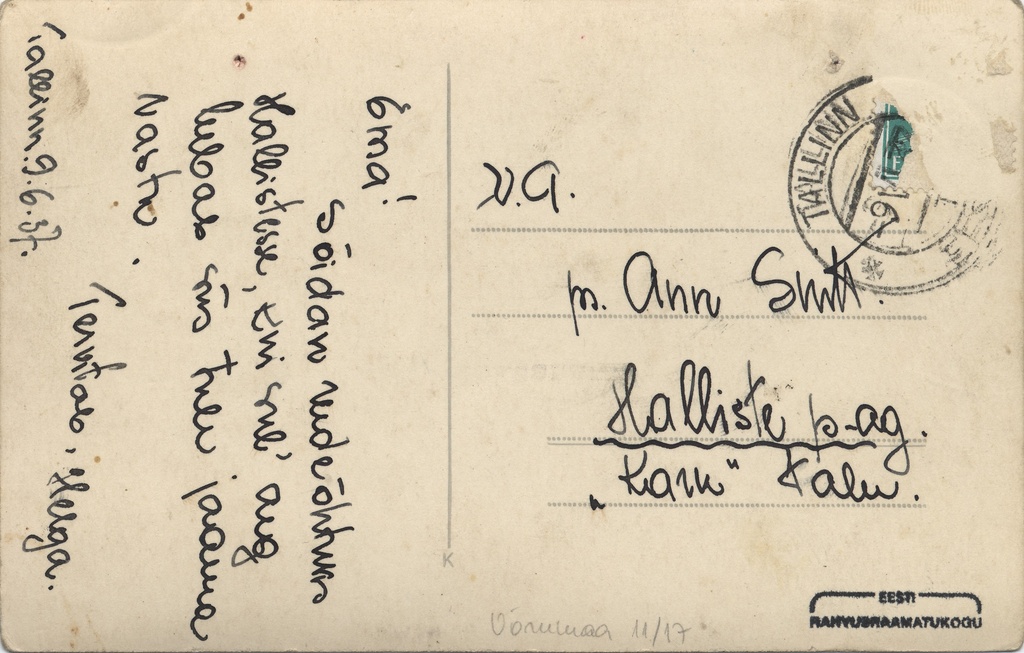 Tallinn 9.6.37.
Ema!
Sõidan
Hallistesse,
lubab siis tulu jaama
vastu.
Tervitab, Helga.
V.A.
pr. Ann Smitt.
Halliste p-ag.
"Karu" Talu.
TALLINN
EESTI
RAHVUSRAAMATUKOGU
Võrumaa 11/17
K